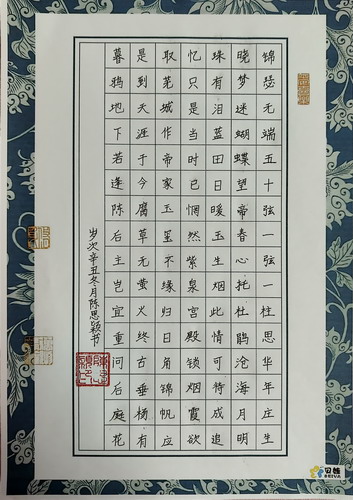 锦瑟无端五十弦一弦一柱思华年庄生
晓梦迷蝴蝶望帝春心托杜鹃沧海月明
珠有泪蓝田日暖玉生烟此情可待成追
忆只是当时已惘然紫泉宫殿锁烟霞欲
取芜城作帝家玉玺不缘归日角锦帆应
是到天涯于今腐草无萤火终古垂杨有
暮鸦地下若逢陈后主岂宜重问后庭花
岁次辛丑冬月陈思颖书